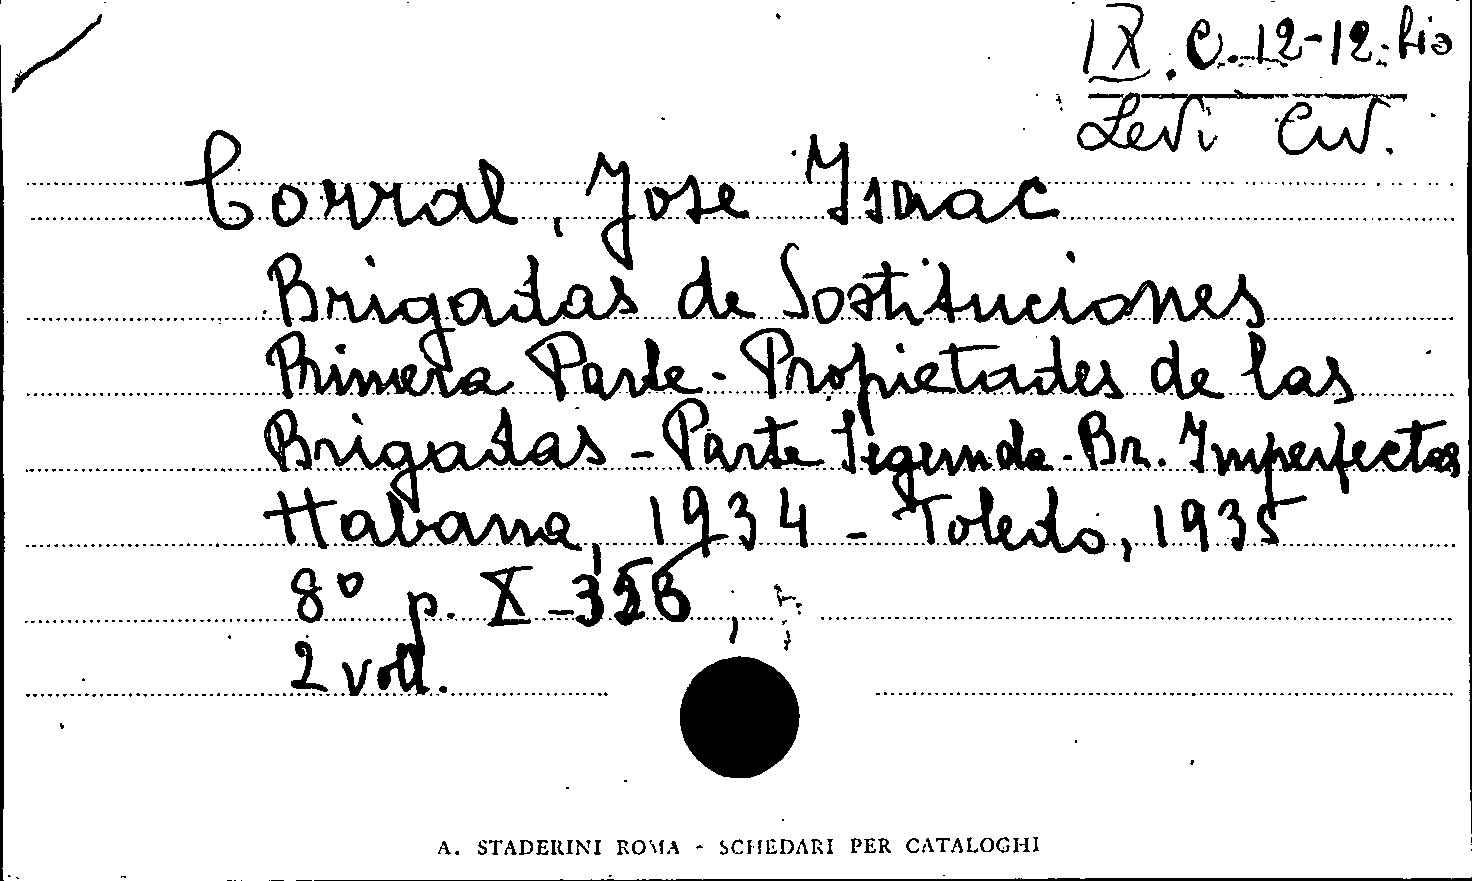 IX.C.12-12.bis
Levi Civ.
Corral, Jose Isaac
Brigadas de Sostituciones
Primera Parte - Propietades de las
Brigadas - Parte Segunda - Br. Imperfectas
Habana, 1934 - Toledo, 1935
8° p. X -326,
2 voll.
A. STADERINI ROMA - SCHEDARI PER CATALOGHI